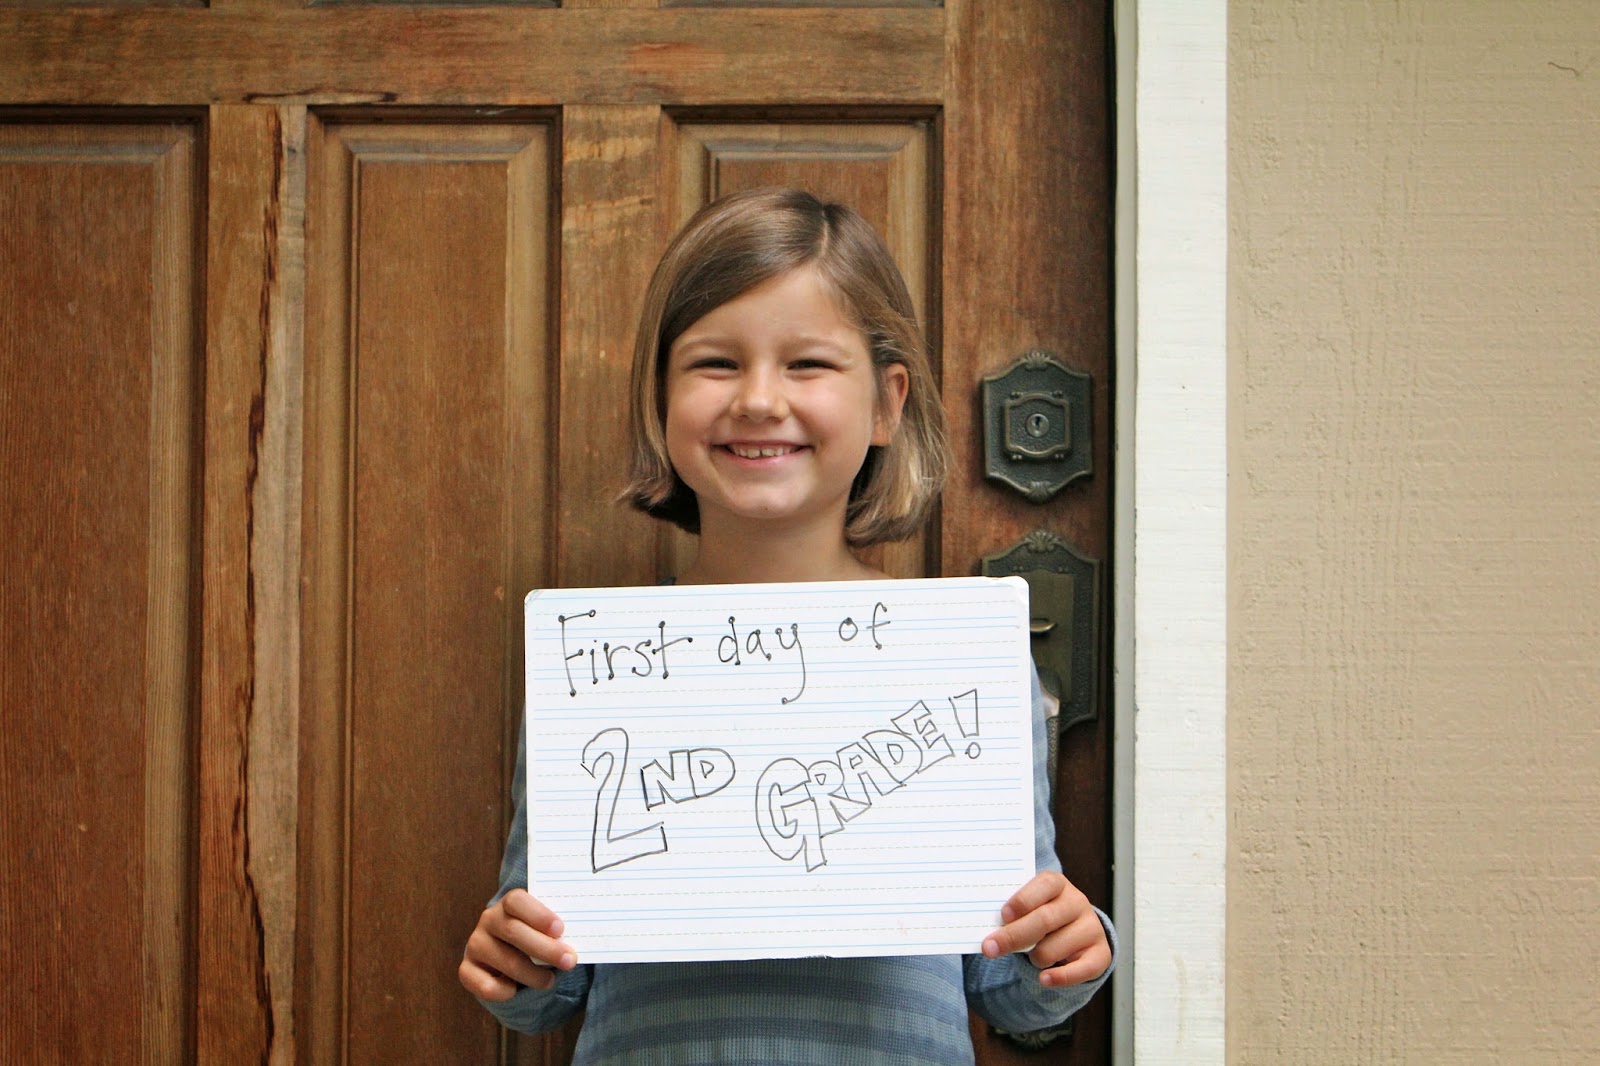 First day of
2ND GRADE!